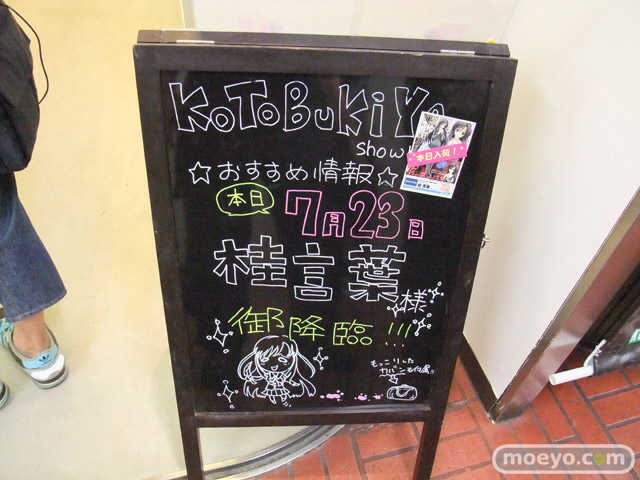 KOTOBUKIYA
show
☆おすすめ情報☆
本日入荷!
本日
7月23日
桂言葉様
御降臨!!!
もっこりした
カバンも付属!!
moeyo.com